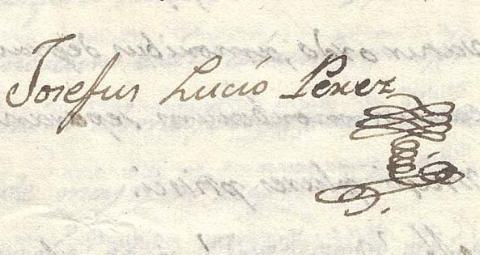 Josefus Lució Perez